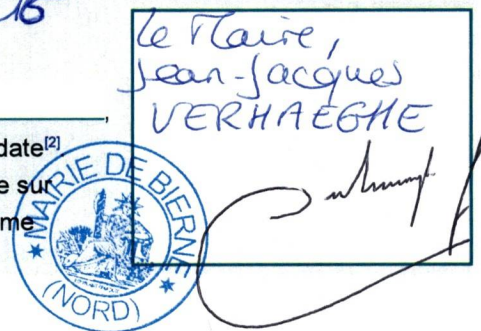 16
Le Maire,
Jean-Jacques
VERHAEGHE
,
date[2]
e sur
me
MAIRIE DE BIERNE
(NORD)